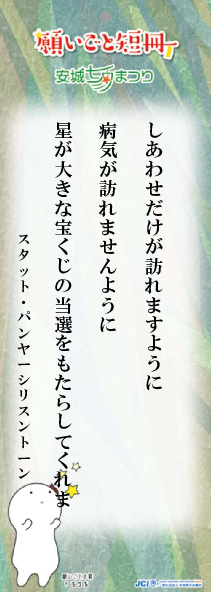 願いごと短冊
安城七夕まつり
しあわせだけが訪れますように
病気が訪れませんように
星が大きな宝くじの当選をもたらしてくれま
スタット・パンヤーシリスントーン
JCI